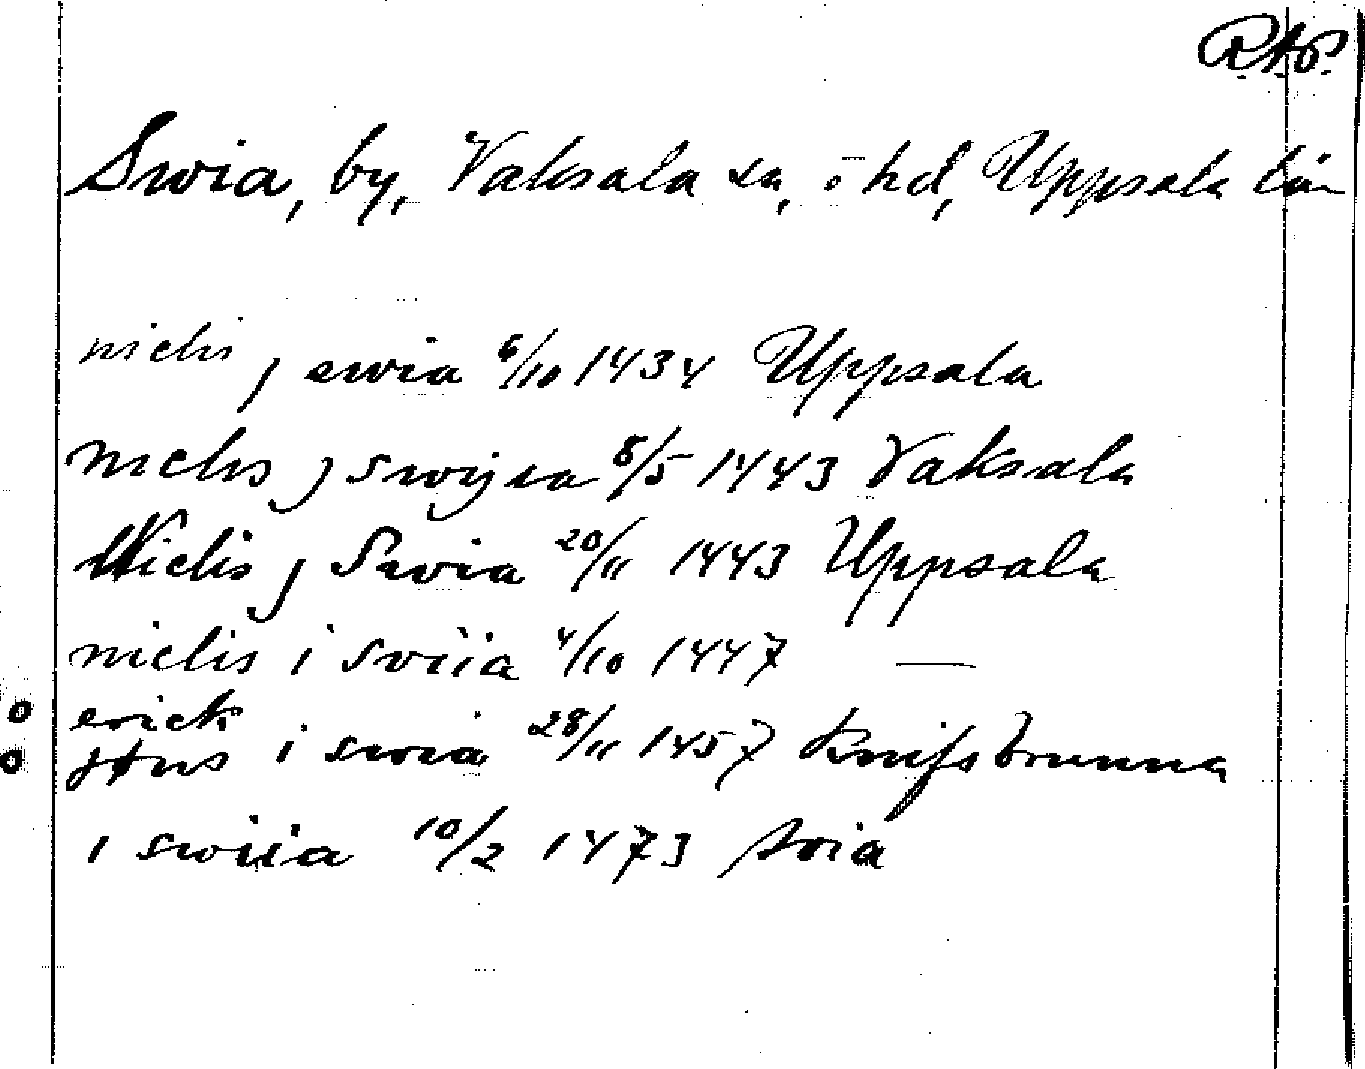 RAP.
Swia, by, Vaksala sn, o hd, Uppsala län
nielis j swia 6/10 1434 Uppsala
nielis j swijia 8/5 1443 Vaksala
Nielis j Swia 20/11 1443 Uppsala
nielis i sviia 4/10 1447 —
erick
i swia 28/11 1457 Knifsbrunna
i swiia 10/2 1473 Svia